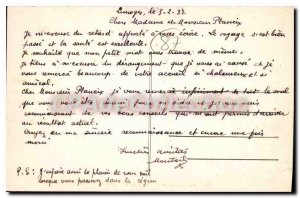 Limoges, le 5-2-37
Chers Madame et Monsieur Plancix
Je m'excuse du retard apporté à vous écrire. Le voyage s'est bien
passé et la santé est excellente.
Je souhaite que mon petit mot vous trouve de même.
Je tiens à m'excuser du dérangement que je vous ai causé et je
vous remercie beaucoup de votre accueil si chaleureux et si
amical.
Cher Monsieur Plancix je vous remercie infiniment de tout le
que vous
connaissance de vos bons conseils qui m'ont permis d'arriver
au résultat actuel.
Croyez, en ma sincère reconnaissance et encore une fois
merci
Sincères amitiés
P.S: J'espère avoir le plaisir de vous voir
lorsque vous passerez dans la région